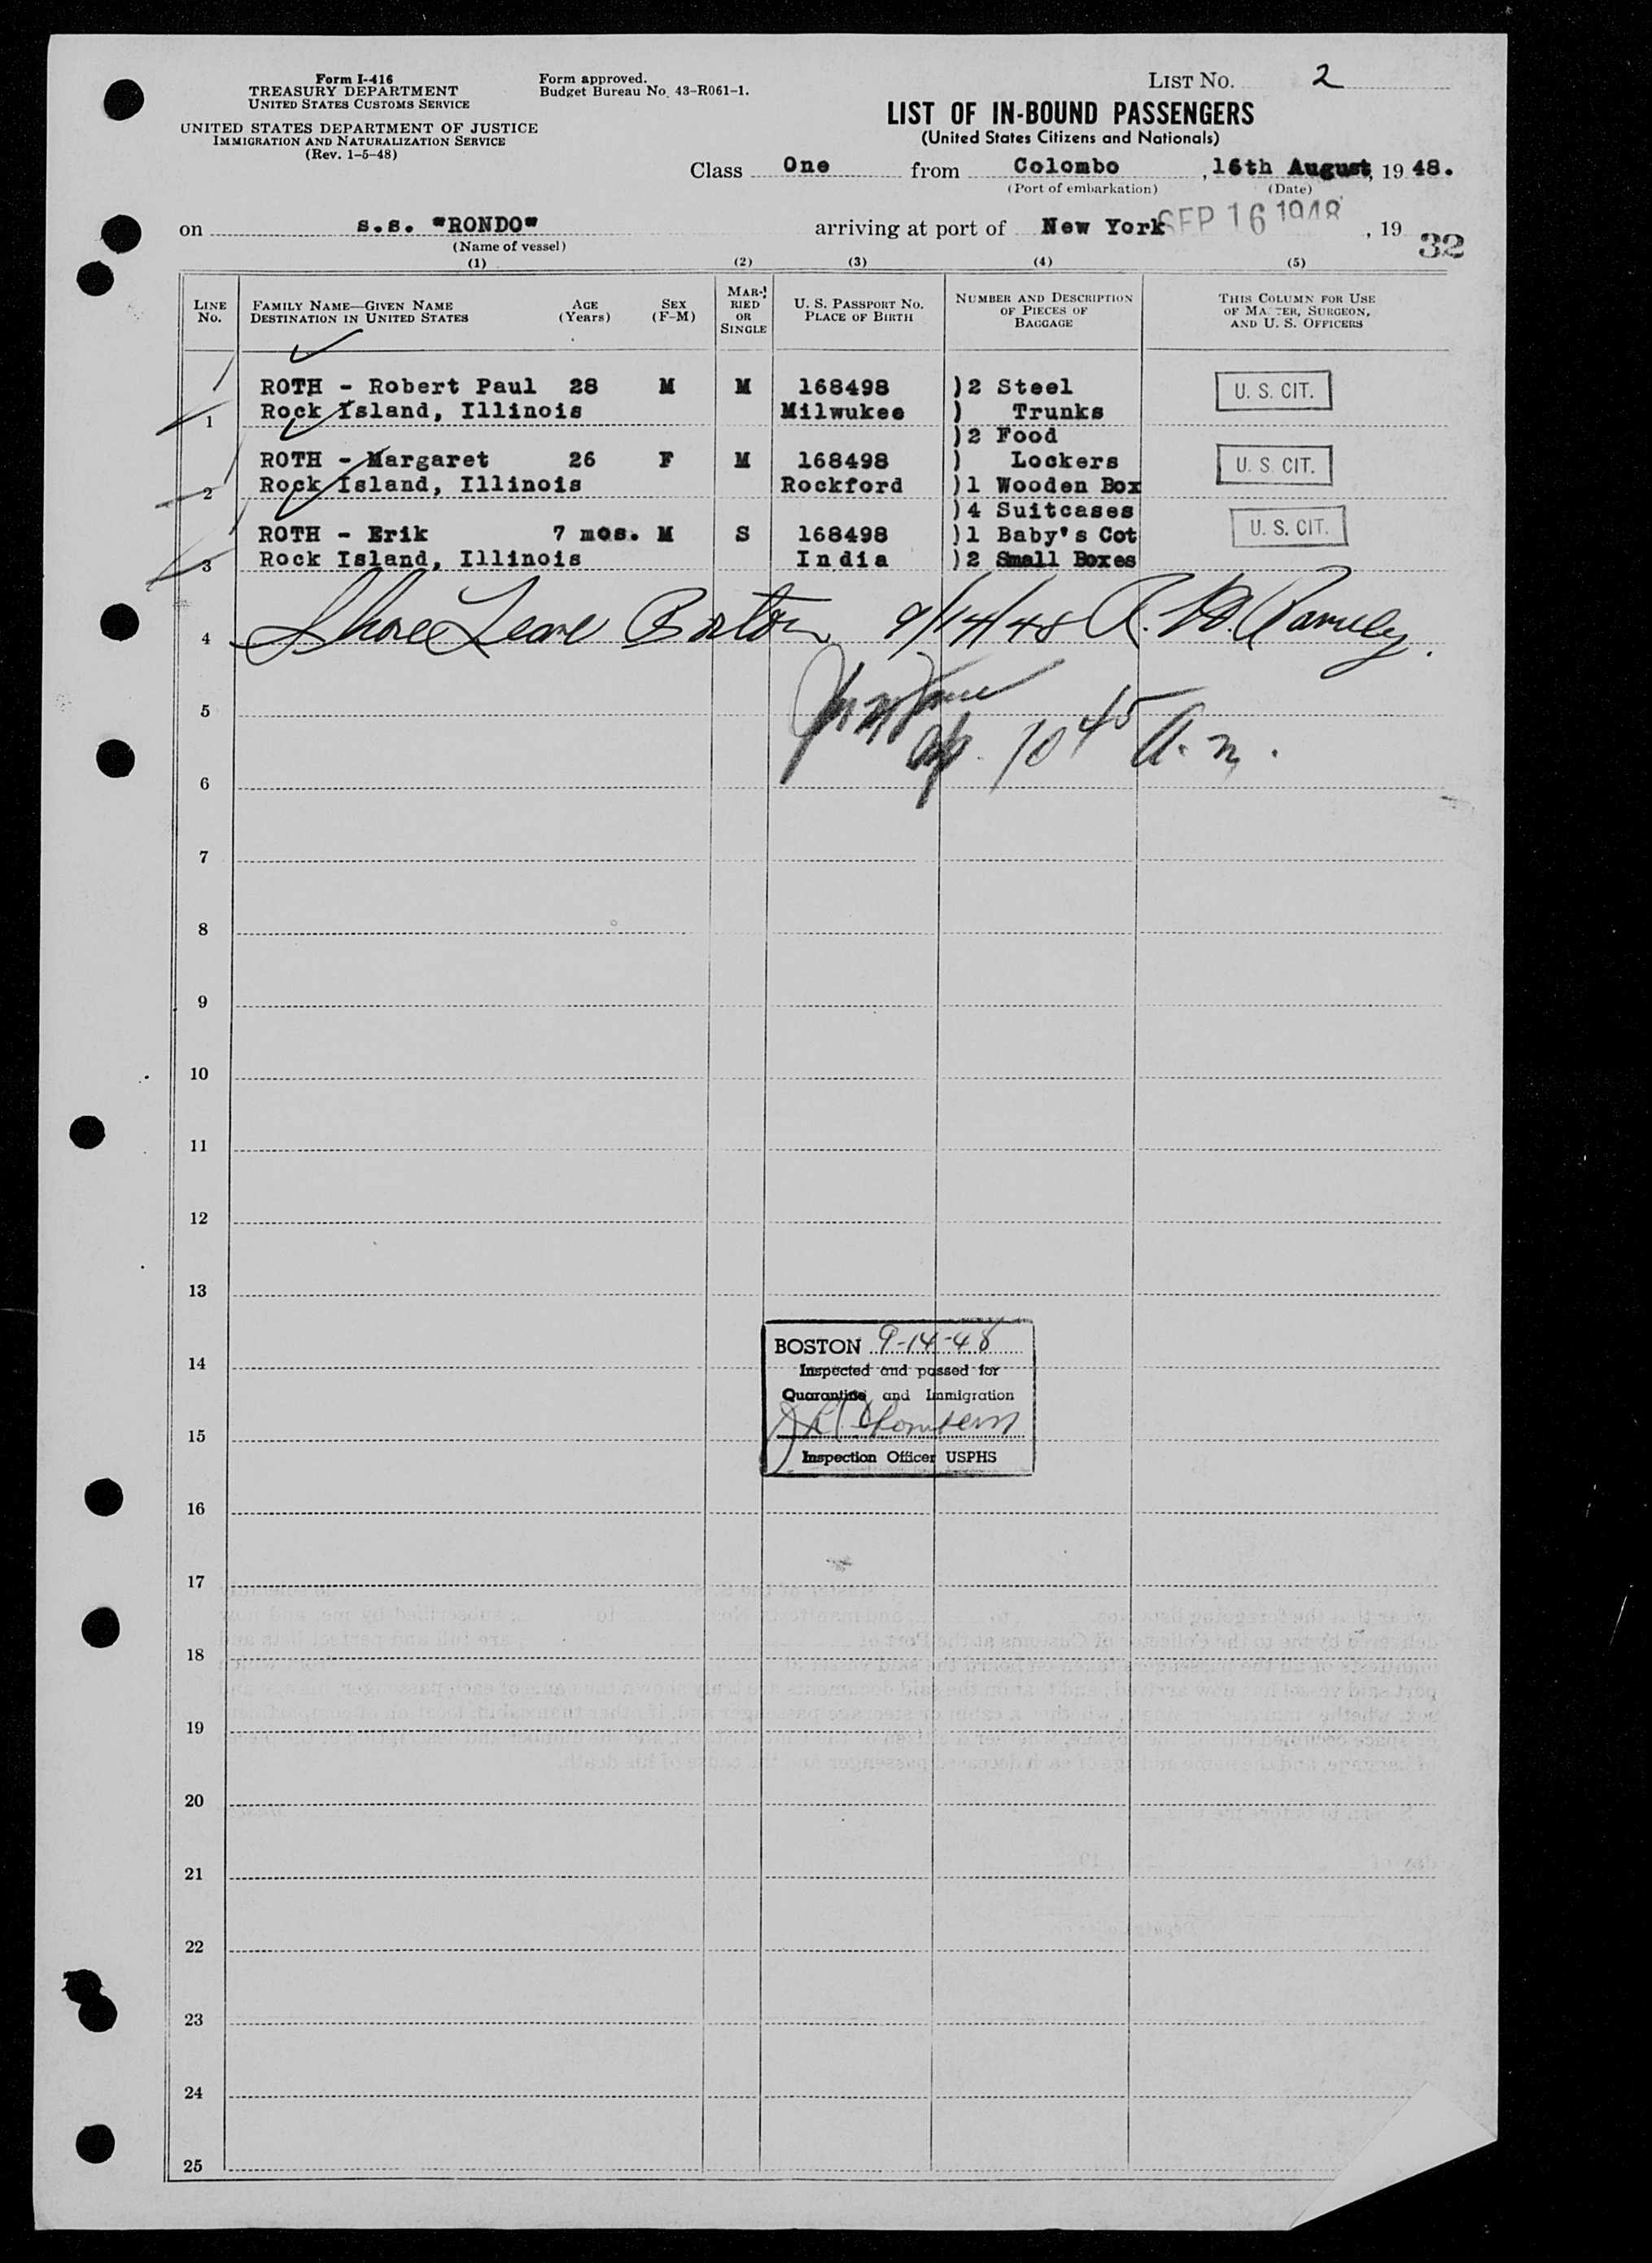 Form I-416
TREASURY DEPARTMENT
UNITED STATES CUSTOMS SERVICE
UNITED STATES DEPARTMENT OF JUSTICE
IMMIGRATION AND NATURALIZATION SERVICE
(Rev. 1-5-48)
Form approved.
Budget Bureau No. 43-R061-1.
LIST NO. 2
LIST OF IN-BOUND PASSENGERS
(United States Citizens and Nationals)
Class One from Colombo, 16th August, 19 48.
(Port of embarkation) (Date)
on s.s. "RONDO" arriving at port of New York SEP 16 1948, 19
(Name of vessel)
32
(1) (2) (3) (4) (5)
LINE No.
FAMILY NAME—GIVEN NAME
DESTINATION IN UNITED STATES
AGE (Years)
SEX (F-M)
MAR-RIED OR SINGLE
U. S. PASSPORT NO.
PLACE OF BIRTH
NUMBER AND DESCRIPTION OF PIECES OF BAGGAGE
THIS COLUMN FOR USE OF MASTER, SURGEON, AND U. S. OFFICERS
ROTH - Robert Paul 28 M M 168498 )2 Steel U. S. CIT.
1 Rock Island, Illinois Milwukee ) Trunks
)2 Food
ROTH - Margaret 26 F M 168498 ) Lockers U. S. CIT.
2 Rock Island, Illinois Rockford )1 Wooden Box
)4 Suitcases
ROTH - Erik 7 mos. M S 168498 )1 Baby's Cot U. S. CIT.
3 Rock Island, Illinois India )2 Small Boxes
4 Shore Leave Boston 9/14/48
5
10 45 A. m.
6
7
8
9
10
11
12
13
BOSTON 9-14-48
14
Inspected and passed for
Quarantine and Immigration
15
Inspection Officer USPHS
16
17
18
19
20
21
22
23
24
25